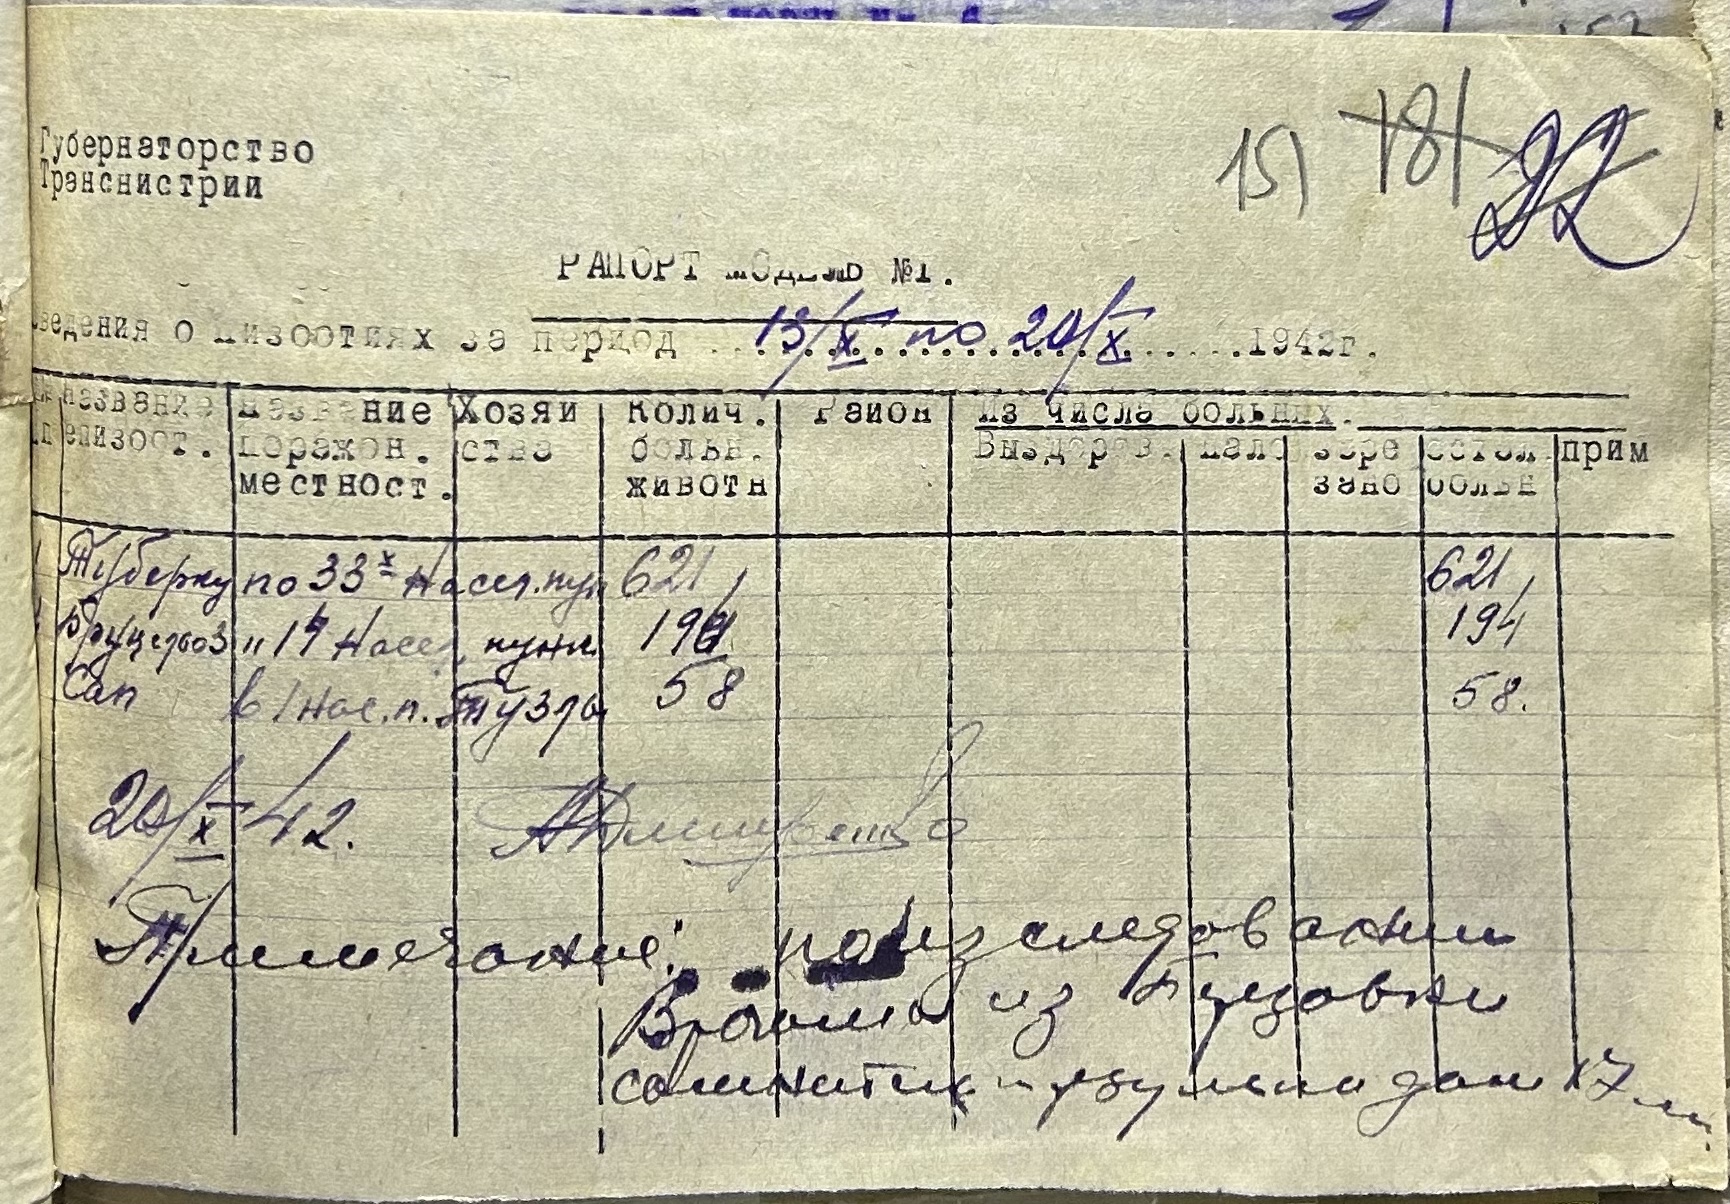 151 181 22
Губернаторство
Транснистрии
РАПОРТ МОДЕЛЬ №1.
ведения о пизоотиях за период 13/X по 20/X 1942г.
название название Хозяи Колич. Район Из числа больных.
епизоот. поражон. ства больн. Выздоров. пало заре остал. прим
местност. животн зано больн
Туберку по 33х насел. пун 621 621
Бруцелоз " 14 насел. пунк 194 194
Сап в 1 нас. п. Тузлы 58 58.
20/X 42.
Примечание: по исследовании
из
17